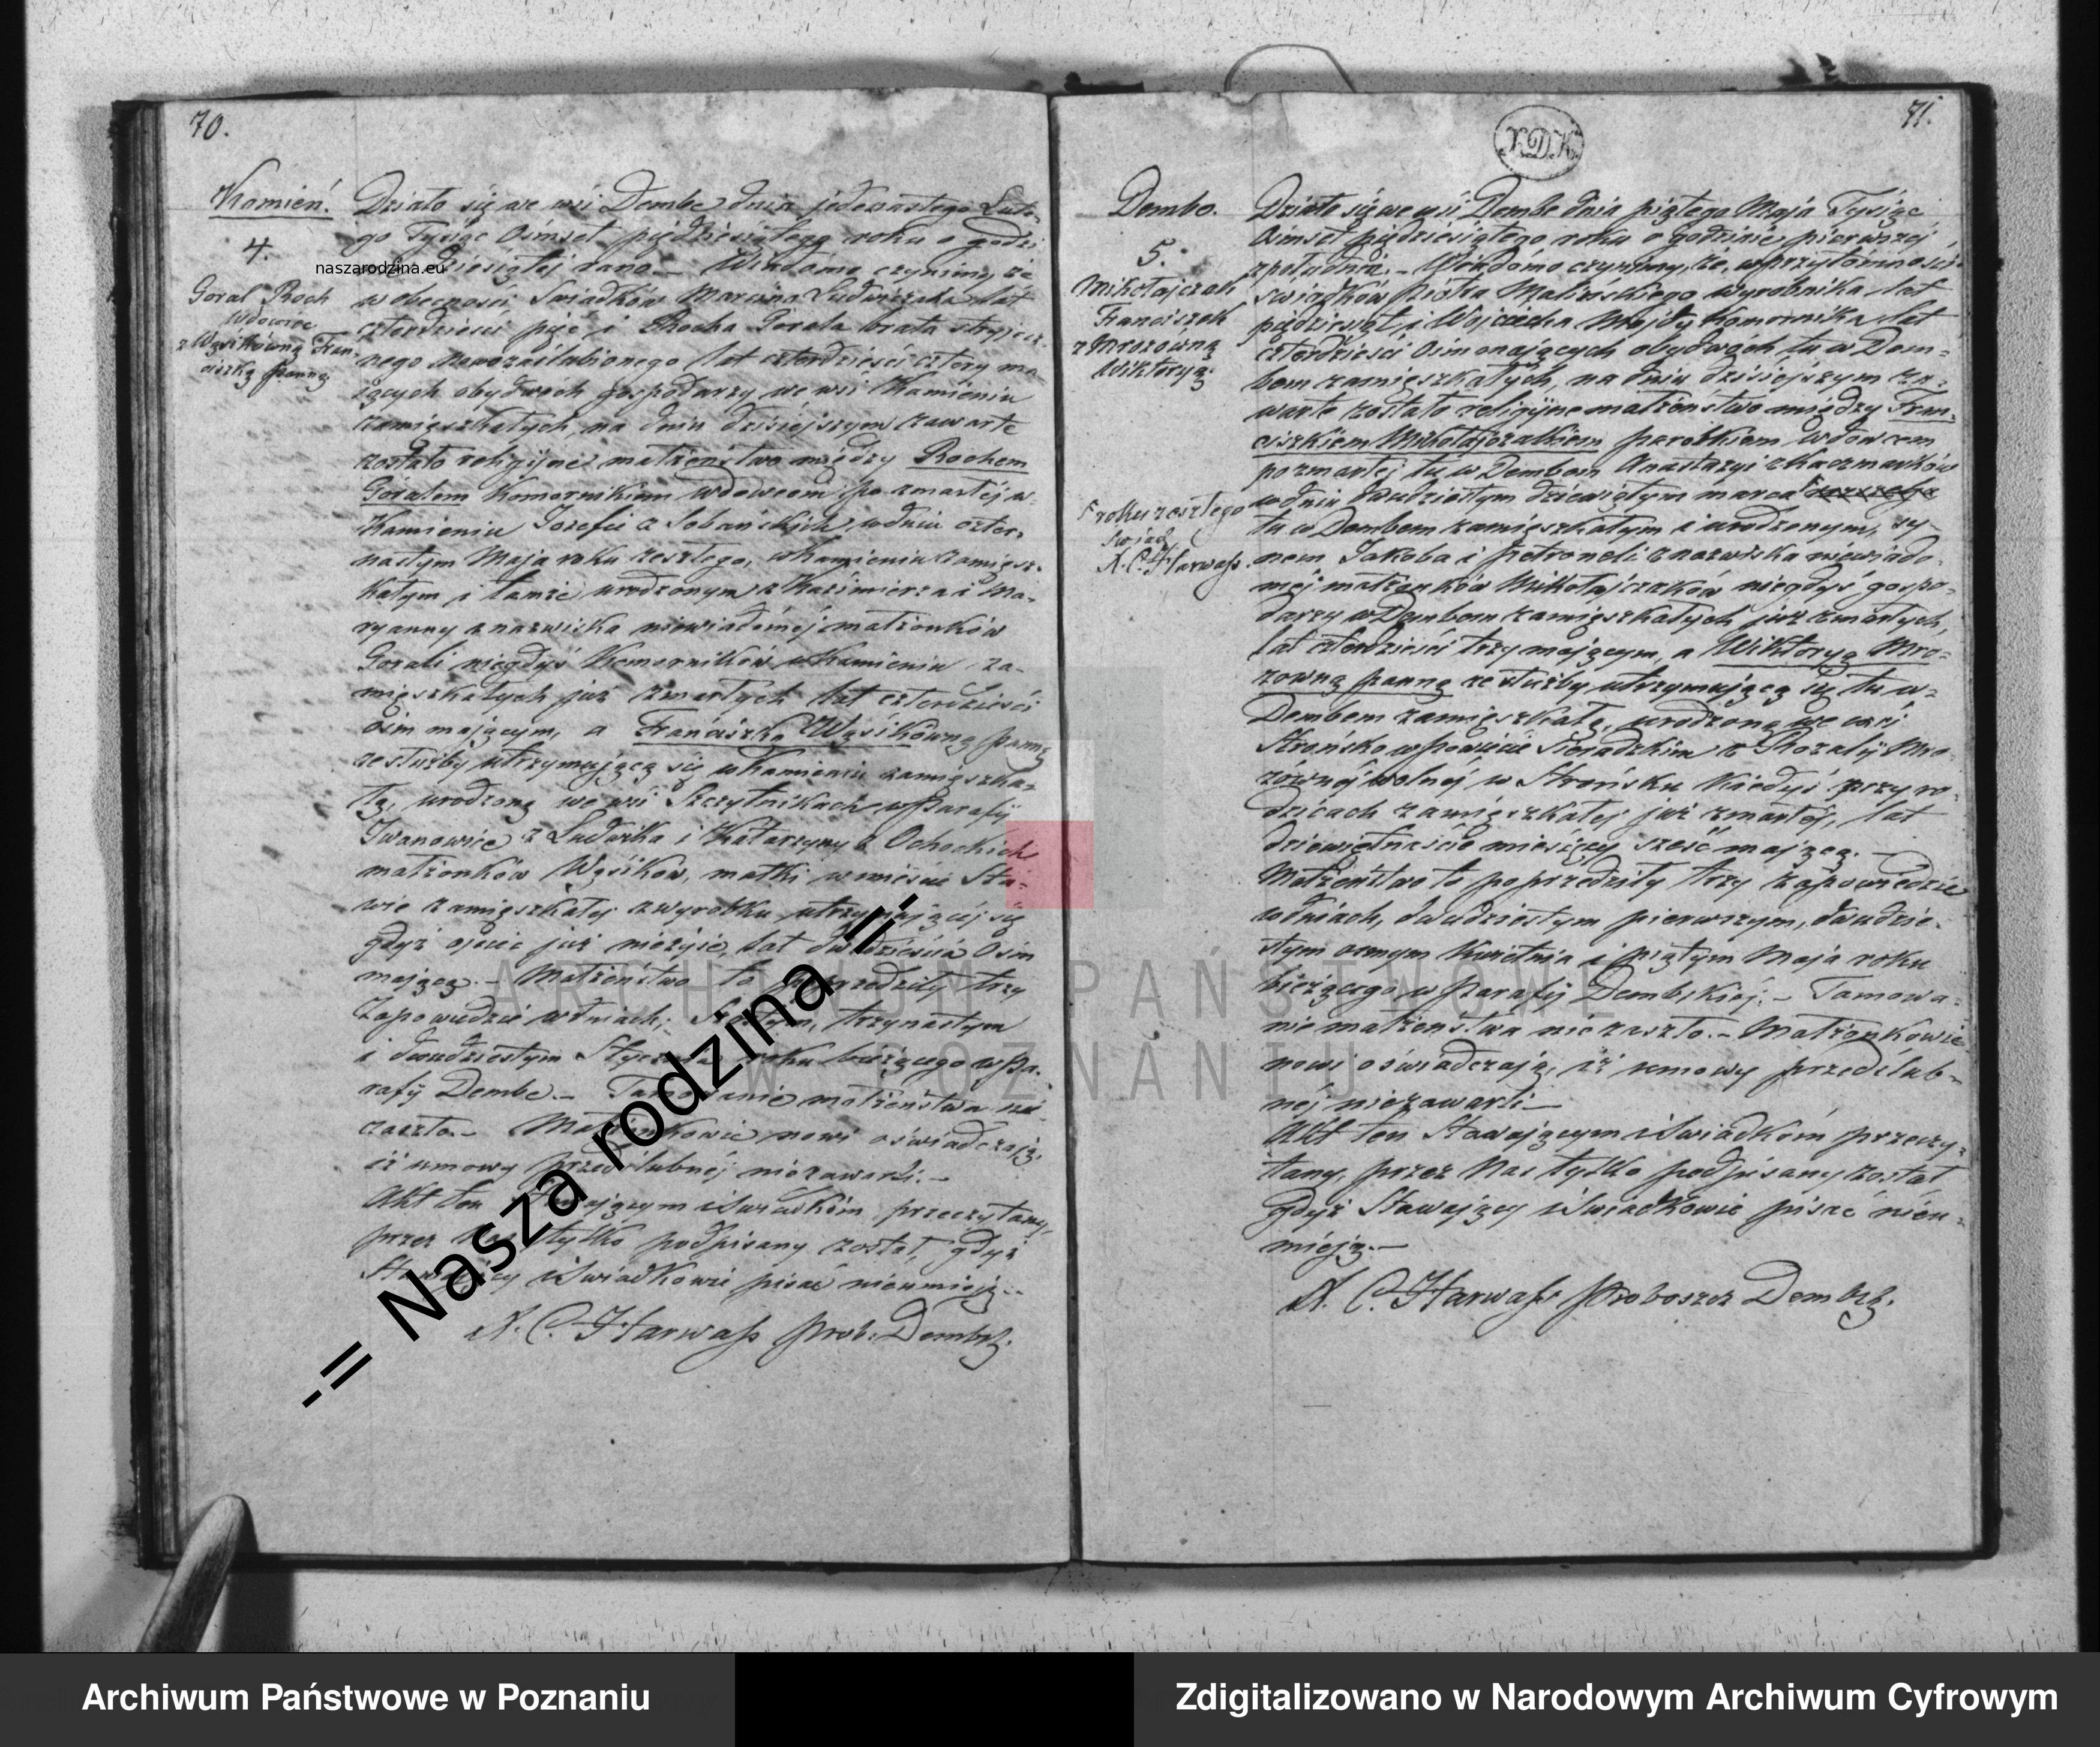 70.
Kamień.
4.
Goral Roch
Wdowiec
z Wąsikówną Fran-
ciszką Panną
Działo się we wsi Dembe dnia jedenastego Lute-
go Tysiąc Ośmset pięćdziesiątego roku o godzi
dziesiątej rano. – Wiadomo czynimy, że
w obecności Swiadków Marcina Ludwiczaka lat
czterdzieści pięć i Rocha Gorala brata stryjecz-
nego Nowozaślubionego lat czterdzieści cztery ma
jących obydwóch gospodarzy we wsi Kamieniu
zamięszkałych, na dniu dzisiejszym zawarte
zostało religijne małżeństwo między Rochem
Góralem Komornikiem wdowcem po zmarłej w
Kamieniu Jozefie z Sobańskich, w dniu czter-
nastym Maja roku zeszłego, w Kamieniu zamięsz-
kałym i tamże urodzonym z Kaźimierza i Ma-
ryanny z nazwiska niewiadomej małżonków
Gorali niegdyś Komorników w Kamieniu za-
mięszkałych już zmarłych lat czterdzieści
ośm mającym, a Franciszką Wąsikówną panną
ze służby utrzymującą się w Kamieniu zamięszka-
łą, urodzoną we wsi Szczytnikach w Parafij
Iwanowice z Ludwika i Katarzyny z Ochockich
małżonków Wąsików, matki w mieście Sta-
wie zamięszkałej z wyrobku utrzymującej się
gdyż ojciec już nieżyie, lat dwadzieścia Ośm
mającą. – Małżeństwo to poprzedziły trzy
Zapowiedzie w dniach; Szóstym, trzynastym
i dwudziestym Stycznia roku bieżącego w Pa-
rafij Dembe. – Tamowanie małżeństwa nie
zaszło. – Małżonkowie nowi oświadczają,
iż umowy przedślubnéj niezawarli. –
Akt ten Stawającym i Swiadkom przeczytany,
przez Nas tylko podpisany został, gdyż
Stawający i Swiadkowie pisać nieumieją. –
X. C. Harwass Prob. Dembs.
71.
X.D.K.
Dembe.
5.
Mikołajczak
Franciszek
z Mrozowną
Wiktoryą.
F roku zeszłego
X. C. Harwass.
Działo się we wsi Dembe dnia piątego Maja Tysiąc
Ośmset pięćdziesiątego roku o godzinie pierwszej
z południa. – Wiadomo czynimy, że w przytomności
świadków Piotra Malińskiego wyrobnika lat
pięćdziesiąt, i Wojciecha Majdy Komornika lat
czterdzieści Ośm mających obydwóch tu w Dem-
bem zamięszkałych, na dniu dzisiejszym za-
warte zostało religijne małżeństwo między Fran-
ciszkiem Mikołajczakiem parobkiem wdowcem
po zmarłej tu w Dembem Anastazyi z Kaczmarków
w dniu dwudziestym dziewiątym marca
tu w Dembem zamięszkałym i urodzonym, sy-
nem Jakoba i Petroneli z nazwiska niewiado-
mej małżonków Mikołajczaków niegdyś gospo-
darzy w Dembem zamięszkałych już zmarłych,
lat czterdzieści trzy mającym, a Wiktoryą Mro-
zowną panną ze służby utrzymującą się tu w
Dembem zamięszkałą, urodzoną we wsi
Strońsko w Powiecie Sieradzkim z Rozalij Mro-
zównéj wolnéj w Strońsku kiedyś przy ro-
dzicach zamięszkałej już zmarłéj, lat
dziewiętnaście miesięcy sześć mającą. –
Małżeństwo to poprzedziły trzy zapowiedzie
w dniach, dwudziestym pierwszym, dwudzie-
stym osmym Kwietnia i piątym Maja roku
bieżącego, w Parafij Dembskiej. – Tamowa-
nie małżeństwa nie zaszło. – Małżonkowie
nowi oświadczają, iż umowy przedślub-
néj niezawarli. –
Akt ten Stawającym i Swiadkom przeczy-
tany, przez Nas tylko podpisany został
gdyż Stawający i Swiadkowie pisać nieu-
mieją. –
X. C. Harwass Proboszcz Dembs.
naszarodzina.eu
-= Nasza rodzina =-
ARCHIWUM PAŃSTWOWE
W POZNANIU
Archiwum Państwowe w Poznaniu
Zdigitalizowano w Narodowym Archiwum Cyfrowym